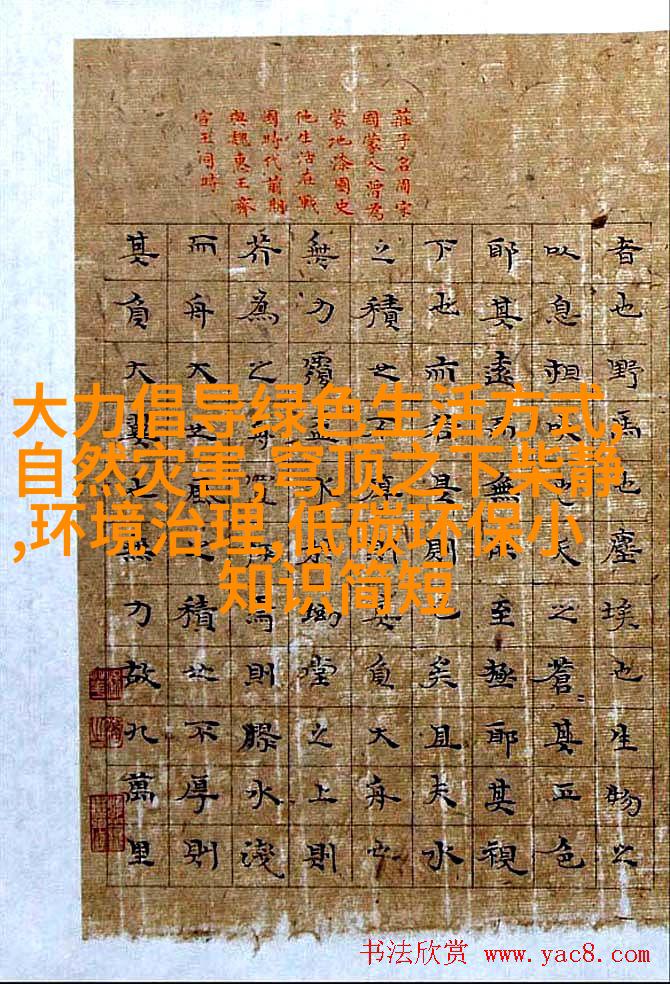 莊子名周宋
國蒙人曾為
蒙地漆園史
他生活在戰
國時代前期
與魏惠王齊
宣王同時
者也野馬也塵埃也生物之
以息相吹也天之蒼其正色
耶其遠而無所至極耶其視
下也而若是則已矣且夫水
之積也不厚則其負大舟也
無力覆盃水於坳堂之上則
芥為之舟置杯焉則膠水淺
而舟大也風之積也不厚則
其負大翼也無力故九萬里
大力倡导绿色生活方式,
自然灾害,穹顶之下柴静
,环境治理,低碳环保小
知识简短
书法欣赏 www.yac8.com